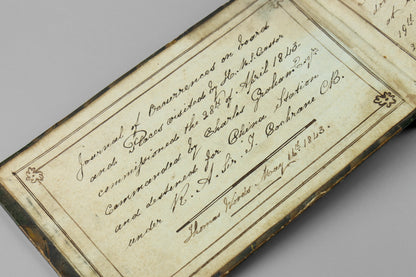 Journal of Occurrences on board
and Places visited by H.M.S. Castor
commissioned the 28th of April 1843.
commanded by Charles Graham Esqr.
and destined for China Station
under R. A. Sir. T. Cochrane CB.
Thomas Woods May 16th 1843.
at
19th